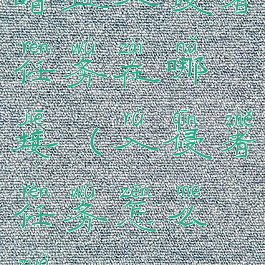 rèn wu zài nǎ
任务在哪
jiē rù qīn zhě
接（入侵者
rèn wu zěn me
任务怎么